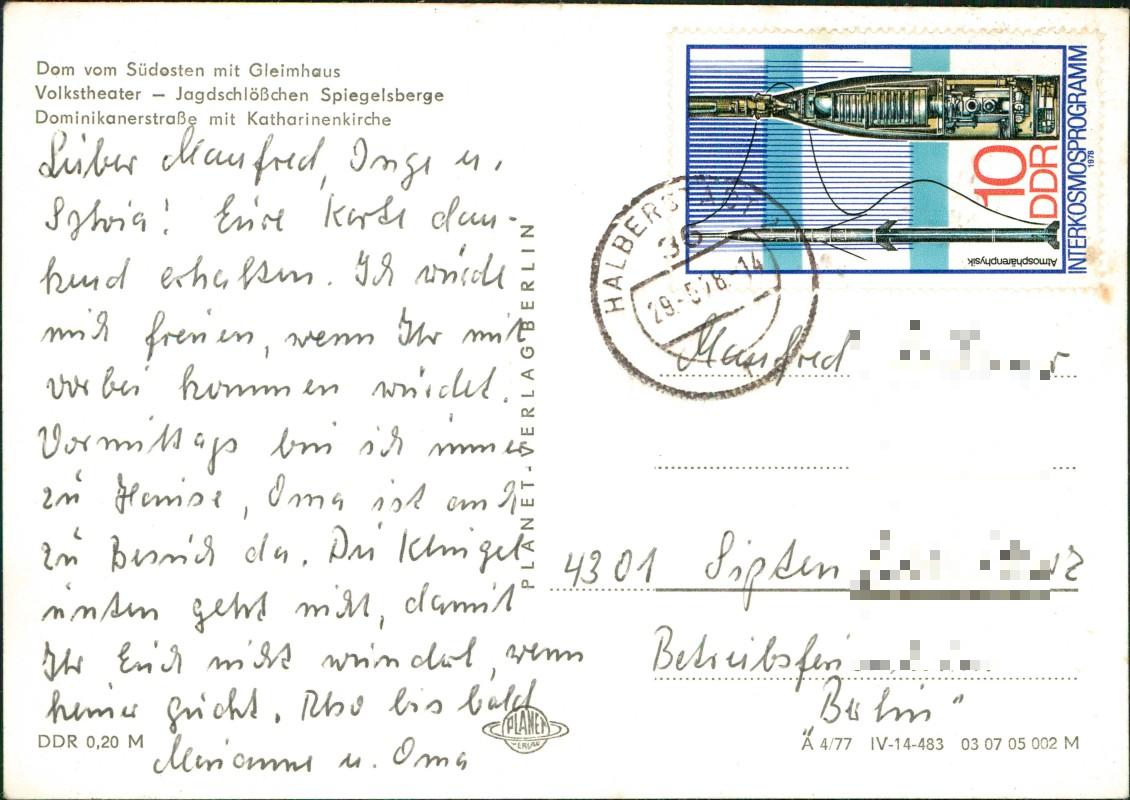 Dom vom Südosten mit Gleimhaus
Volkstheater – Jagdschlößchen Spiegelsberge
Dominikanerstraße mit Katharinenkirche
Lieber Manfred, Inge u.
Sylvia! Eure Karte dan-
kend erhalten. Ich würde
mich freuen, wenn Ihr mit
vorbei kommen würdet.
Vormittags bin ich immer
zu Hause, Oma ist auch
zu Besuch da. Die Klingel
unten geht nicht, damit
Ihr Euch nicht wundert, wenn
keiner guckt. Also bis bald
Marianne u. Oma
DDR 0,20 M
PLANET-VERLAG BERLIN
PLANET
VERLAG
INTERKOSMOSPROGRAMM
1978
10
DDR
Atmosphärenphysik
HALBERSTADT
36
29.-5.78.-14
Manfred
4301 Sipten
Betriebsferi
Berlin"
Ä 4/77 IV-14-483 03 07 05 002 M